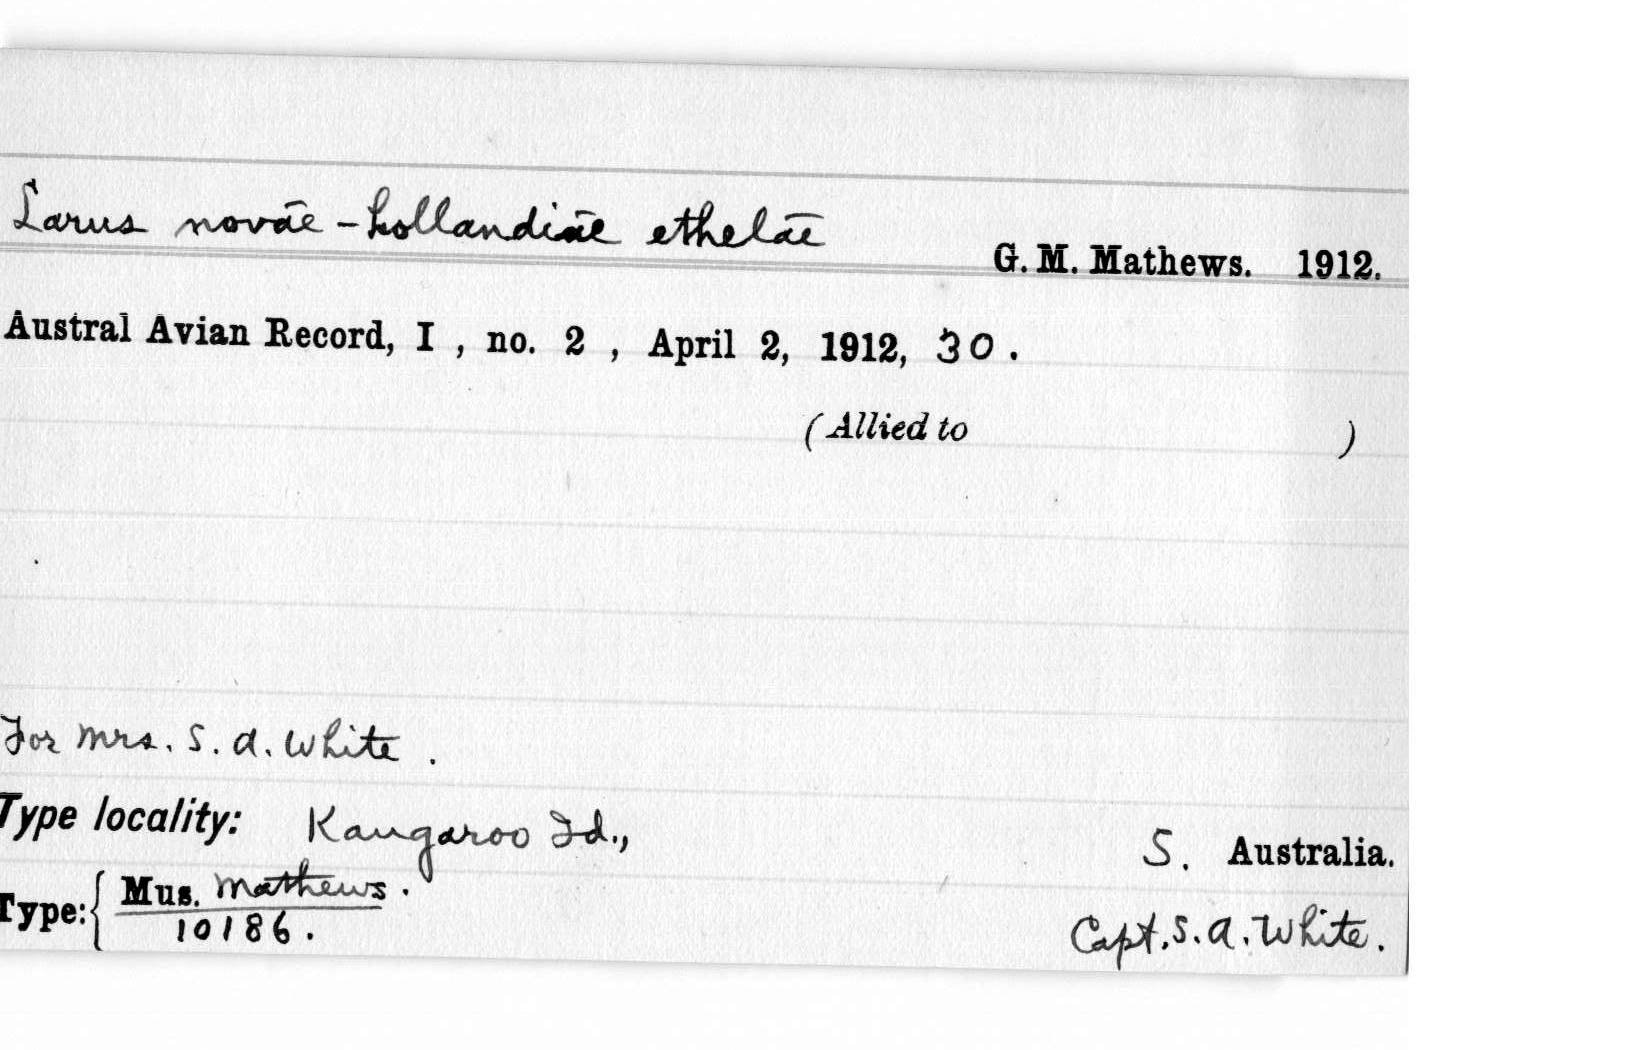 Larus novae-hollandiae ethelae
G. M. Mathews. 1912.
Austral Avian Record, I , no. 2 , April 2, 1912, 30 .
(Allied to )
For Mrs. S. A. White .
Type locality: Kangaroo Id., S. Australia.
Type: { Mus. Mathews .
10186 .
Capt. S. A. White .